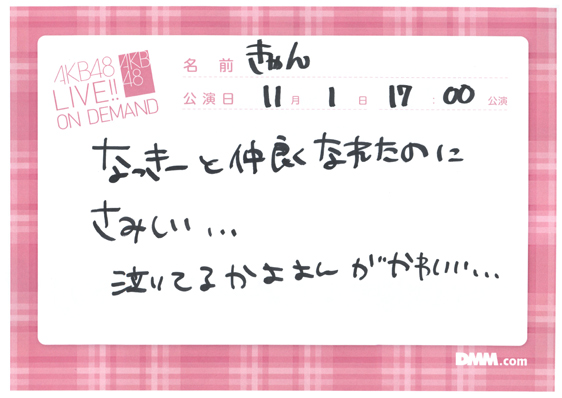 AKB48
LIVE!!
ON DEMAND
AKB
48
名前 きゃん
公演日 11月1日 17:00公演
なっきーと仲良くなれたのに
さみしい...
泣いてるかよよんがかわいい...
DMM.com